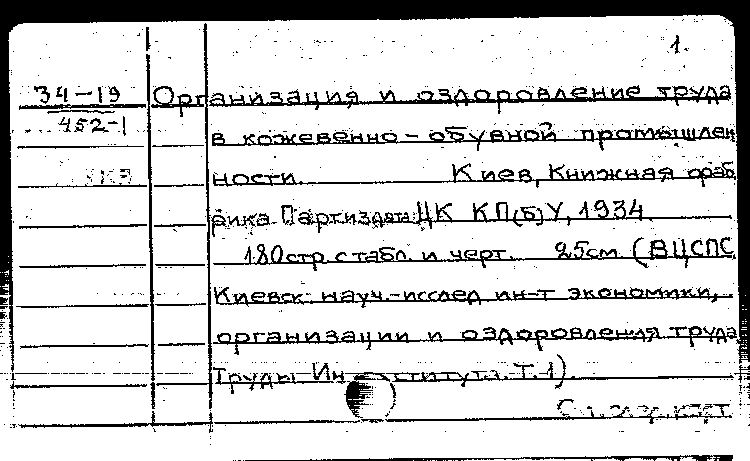 1.
34-19 Организация и оздоровление труда
452-1 в кожевенно-обувной промышлен
ности. Киев, Книжная фаб
рика Партиздата ЦК КП(б)У, 1934
180стр. с табл. и черт. 25см (ВЦСПС.
Киевск. науч.-исслед ин-т экономики,
организации и оздоровления труда
Труды Института. Т. 1).